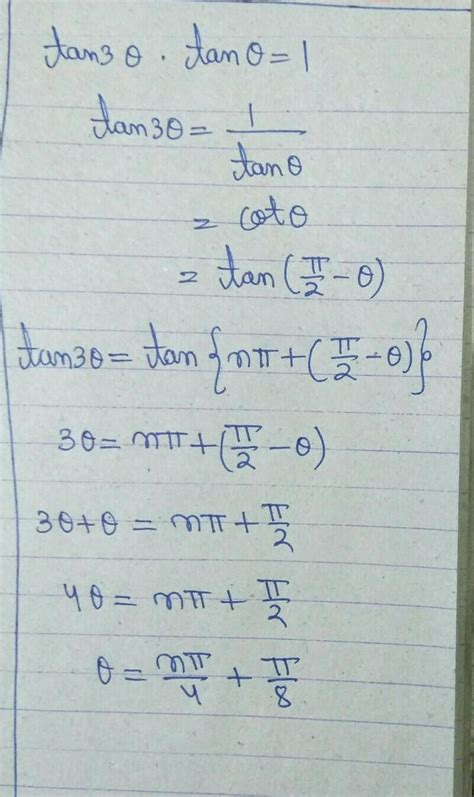 tan3θ . tanθ = 1
tan3θ = 1/tanθ
= cotθ
= tan(π/2 - θ)
tan3θ = tan{nπ + (π/2 - θ)}
3θ = nπ + (π/2 - θ)
3θ + θ = nπ + π/2
4θ = nπ + π/2
θ = nπ/4 + π/8